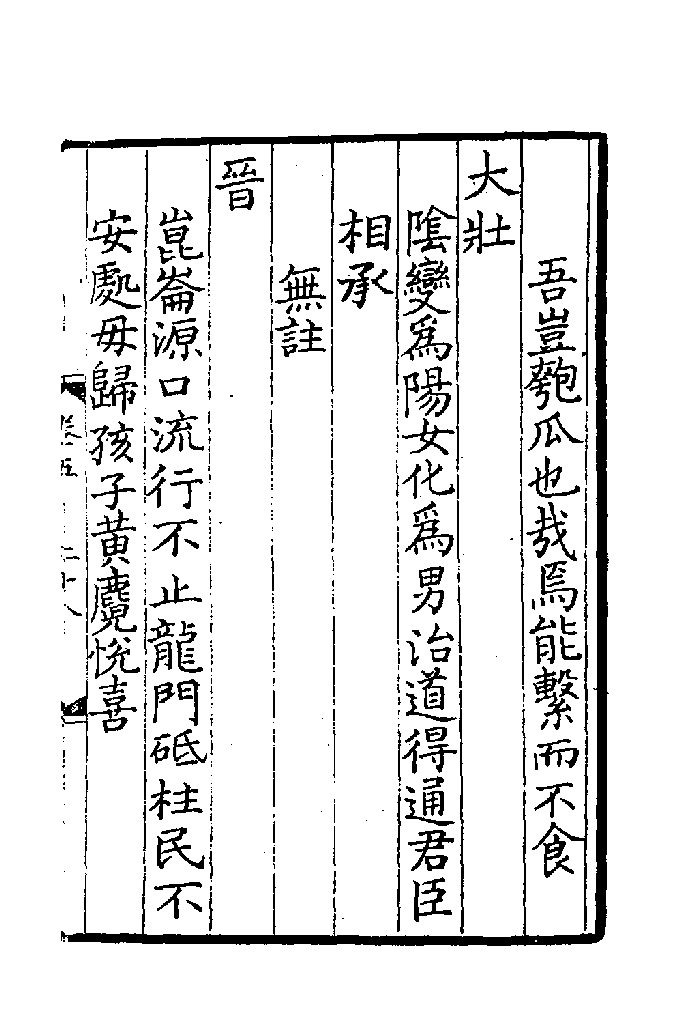 吾豈匏瓜也哉焉能繫而不食
大壯
隂變為陽女化為男治道得通君臣
相承
無註
晉
崑崙源口流行不止龍門砥柱民不
安䖏毋歸孩子黃麑悅喜
卷五
二十八